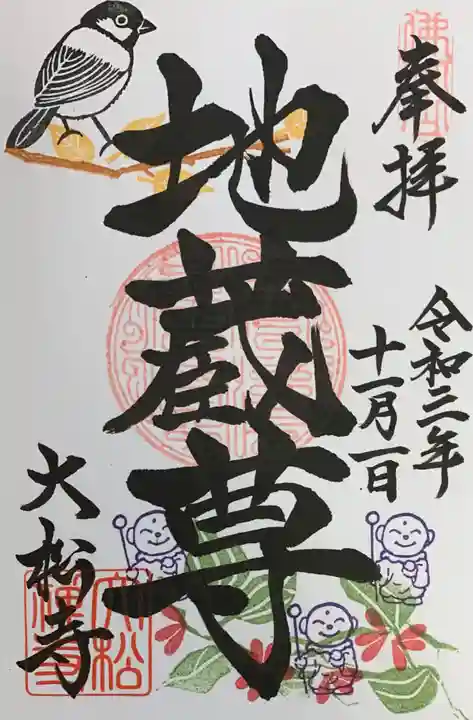 奉拝
令和三年
十一月一日
地蔵尊
大松寺